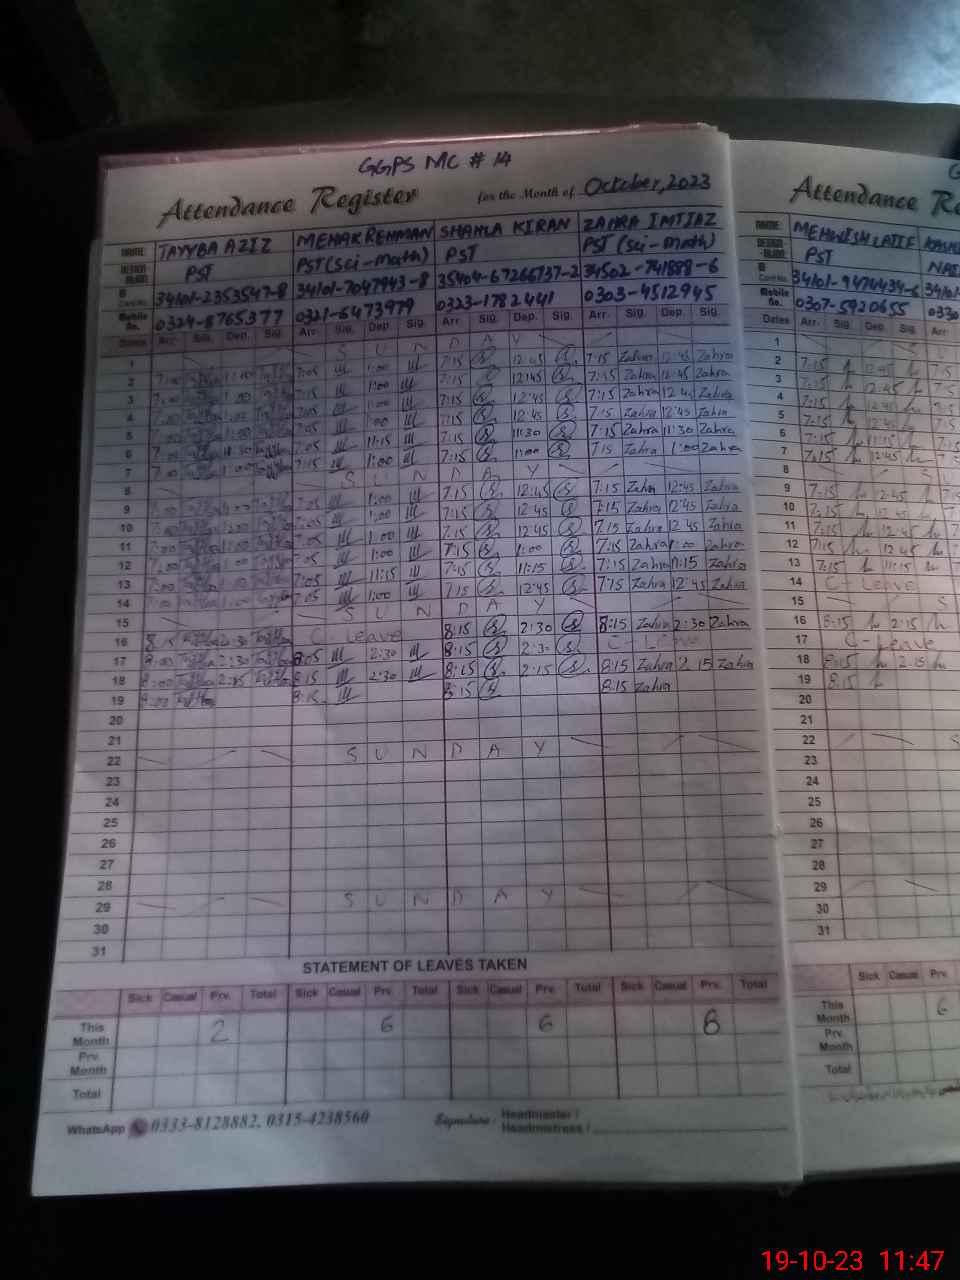 GGPS MC # 14
Attendance Register for the Month of October, 2023
NAME TAYYBA AZIZ MEHAK REHMAN SHAHLA KIRAN ZAHRA IMTIAZ
PST PST (Sci-math) PST PST (Sci-math)
Card No. 34101-2353547-8 34101-7047943-8 35404-6726737-2 34502-741888-6
Mobile No. 0324-8765377 0321-6473979 0323-1782441 0303-4512945
Dates Arr. Sig. Dep. Sig. Arr. Sig. Dep. Sig. Arr. Sig. Dep. Sig. Arr. Sig. Dep. Sig.
1 S U N D A Y
2 7:00 1:00 7:05 1:00 7:15 12:45 7:15 Zahra 12:45 Zahra
3 7:00 1:00 7:05 1:00 7:15 12:45 7:15 Zahra 12:45 Zahra
4 7:00 1:00 7:05 1:00 7:15 12:45 7:15 Zahra 12:45 Zahra
5 7:00 1:00 7:05 1:00 7:15 12:45 7:15 Zahra 12:45 Zahra
6 7:00 11:30 7:05 11:15 7:15 11:30 7:15 Zahra 11:30 Zahra
7 7:00 1:00 7:15 1:00 7:15 1:00 7:15 Zahra 1:00 Zahra
8 S U N D A Y
9 7:00 1:00 7:05 1:00 7:15 12:45 7:15 Zahra 12:45 Zahra
10 7:00 1:00 7:05 1:00 7:15 12:45 7:15 Zahra 12:45 Zahra
11 7:00 1:00 7:05 1:00 7:15 12:45 7:15 Zahra 12:45 Zahra
12 7:00 1:00 7:05 1:00 7:15 1:00 7:15 Zahra 1:00 Zahra
13 7:00 7:05 11:15 7:15 11:15 7:15 Zahra 11:15 Zahra
14 7:00 1:00 7:05 1:00 7:15 12:45 7:15 Zahra 12:45 Zahra
15 S U N D A Y
16 8:15 2:30 C-Leave 8:15 2:30 8:15 Zahra 2:30 Zahra
17 8:00 2:30 8:05 2:30 8:15 2:30 C-Leave
18 8:00 8:15 2:30 8:15 2:15 8:15 Zahra 2:15 Zahra
19 8:00 8:15 8:15 8:15 Zahra
20
21
22 S U N D A Y
23
24
25
26
27
28
29 S U N D A Y
30
31
STATEMENT OF LEAVES TAKEN
Sick Casual Prv. Total Sick Casual Prv. Total Sick Casual Prv. Total Sick Casual Prv. Total
This Month 2 6 6 8
Prv. Month
Total
WhatsApp 0333-8128882, 0315-4238560 Signature: Headmaster / Headmistress /
Attendance Re
NAME MEHWISH LATIF
PST
Card No. 34101-9474434-6 34101-
Mobile No. 0307-5920655 0330
Dates Arr. Sig. Dep. Sig. Arr
1
2 7:15 12:45
3 7:15 12:45
4 7:15 12:45
5 7:15 12:45
6 7:15 11:15
7 7:15 12:45
8 S
9 7:15 12:45
10 7:15 12:45
11 7:15 12:45
12 7:15 12:45
13 7:15 11:15
14 C-Leave
15 S
16 8:15 2:15
17 C-Leave
18 8:15 2:15
19 8:15
20
21
22 S
23
24
25
26
27
28
29
30
31
Sick Casual Prv.
This Month 6
Prv. Month
Total
19-10-23 11:47